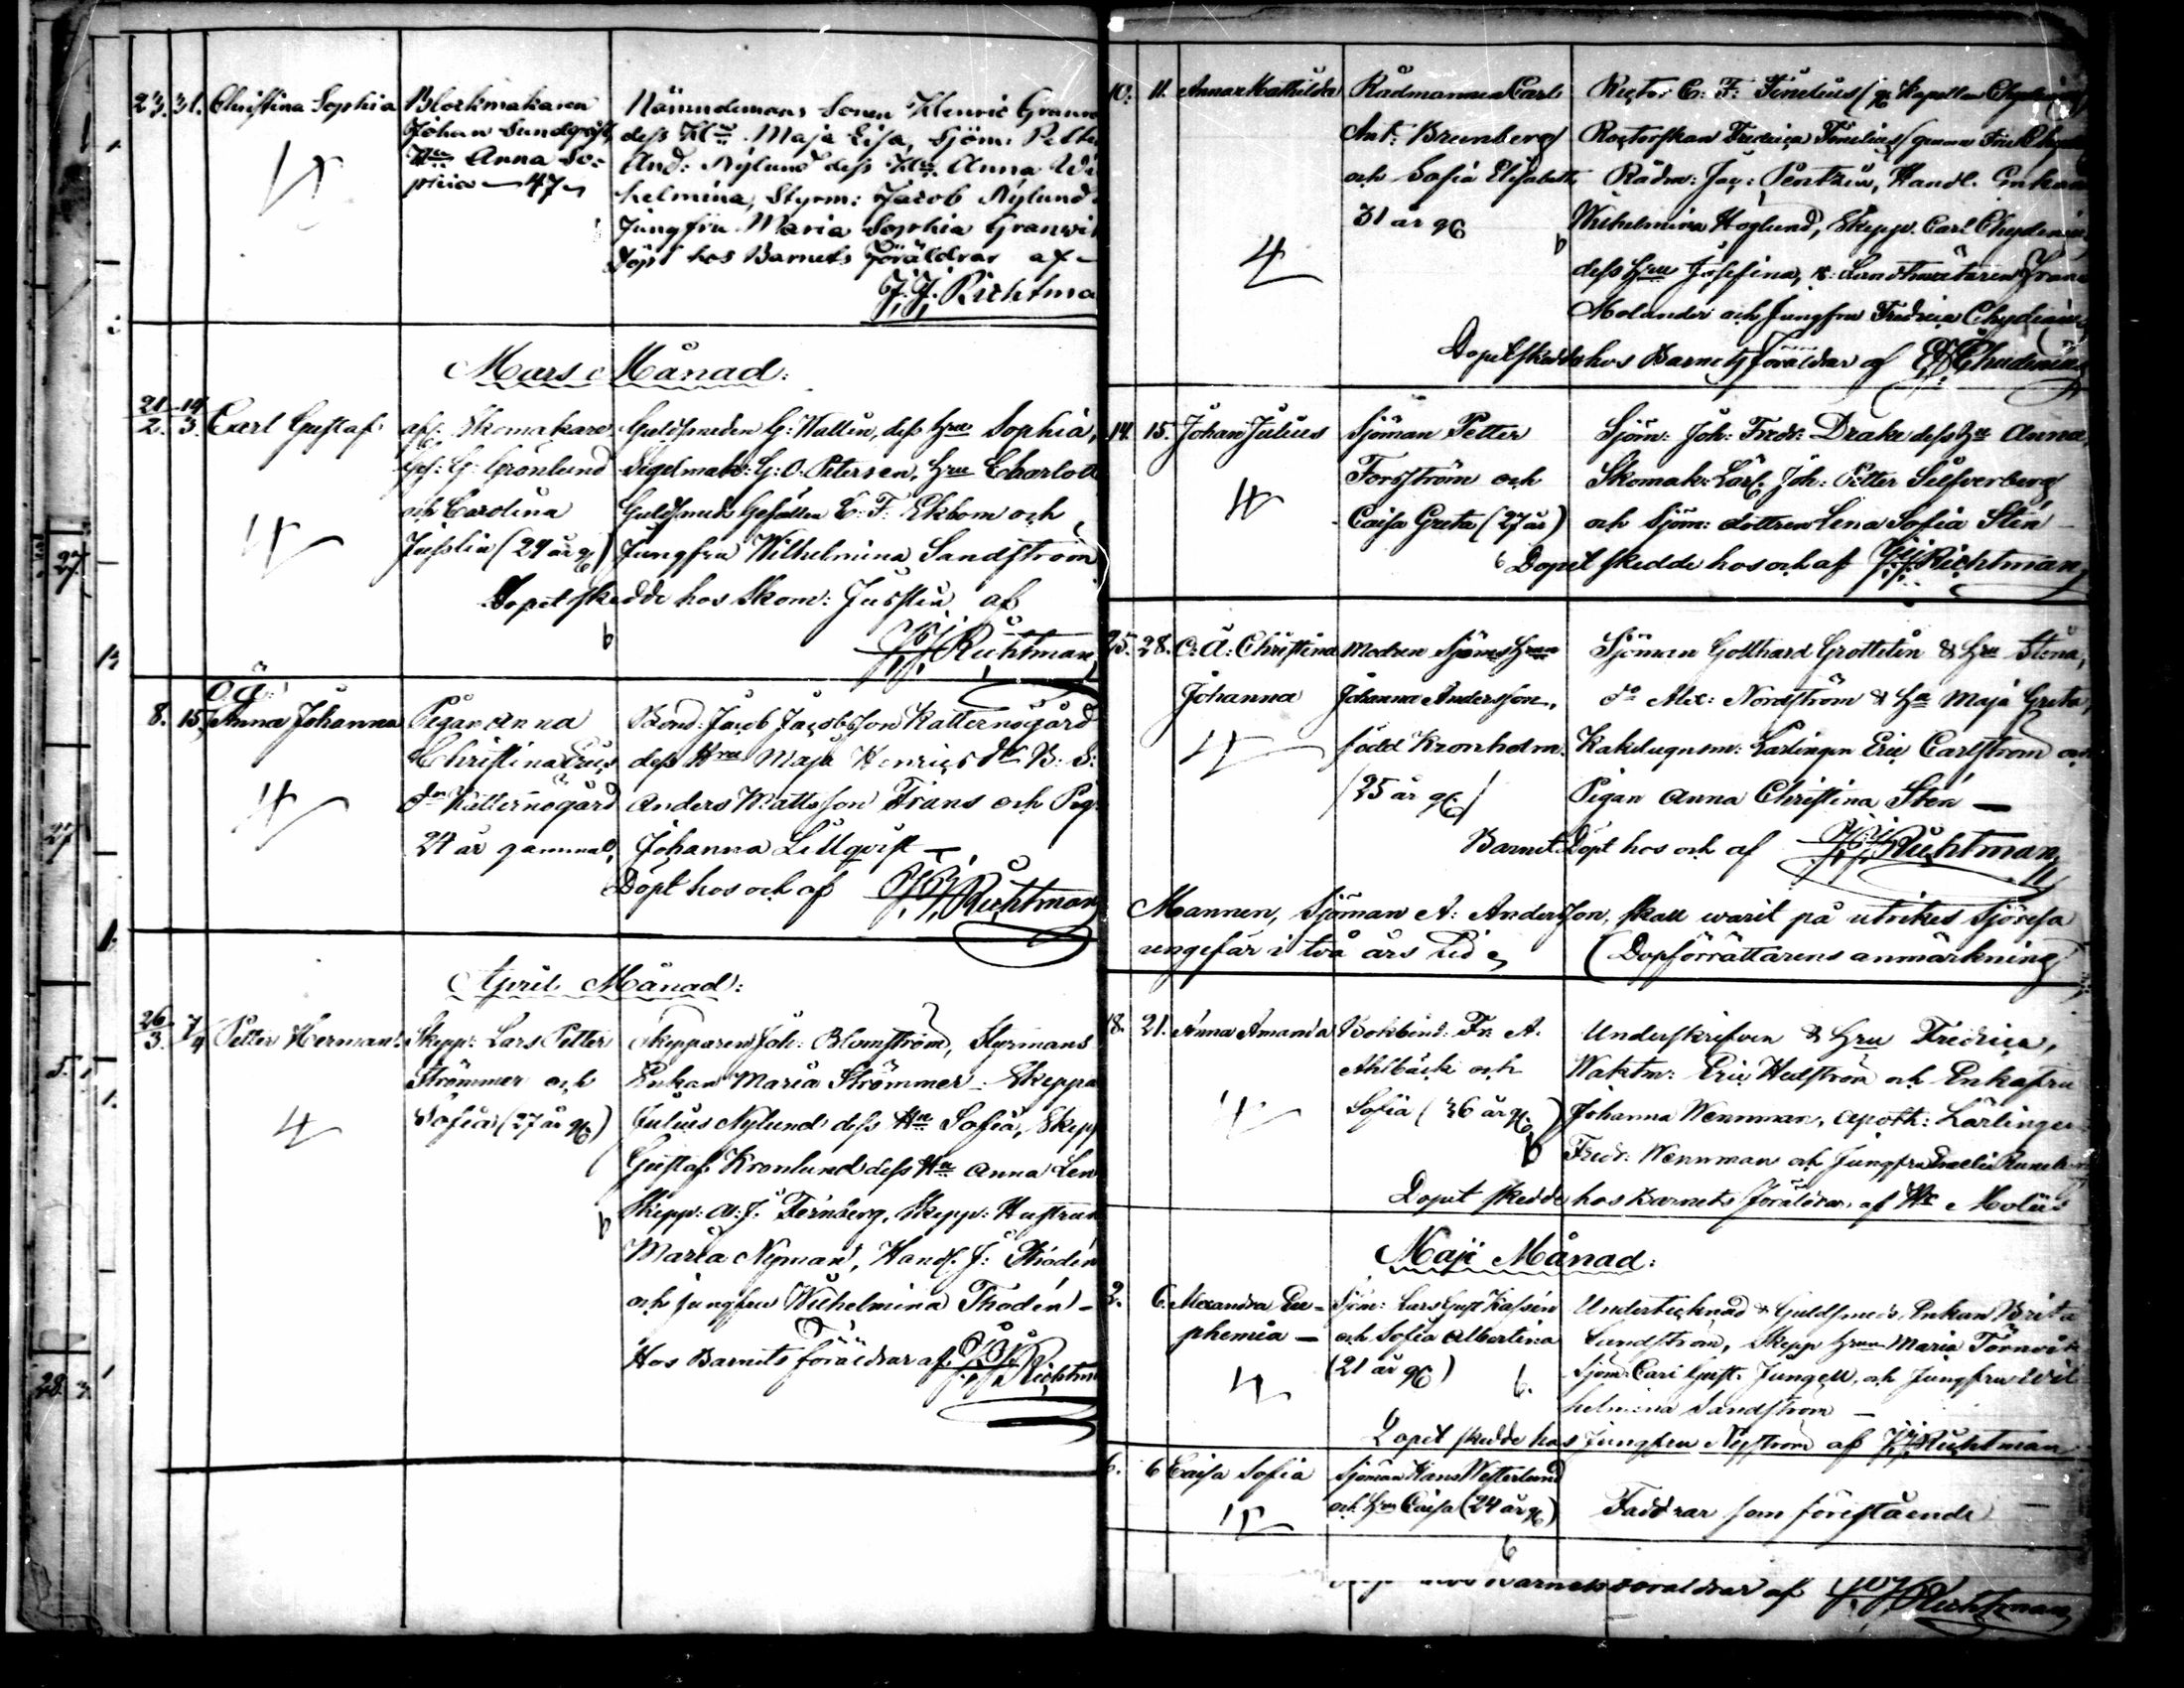 23. 31. Christina Sophia
Blockmakaren
Johan Sundqvist,
Hu Anna So-
phia 47
Nämndemans Sonen Henric
dess Hu Maja Lisa, Sjöm:
And: Nylund dess Hu Anna Wi
helmina, Styrm: Jacob Nylund
Jungfru Maria Sophia
Döpt hos Barnets Föräldrar af
J. J. Richtma
Mars Månad:
21/2. 14/3. Carl Gustaf
Skomakare
Ges: G: Grönlund
och Carolina
Jusslin (24 år gl)
Guldsmeden G: Wallin, dess Hru Sophia,
Segelmak: G: O. Petersen, Hru Charlott
Guldsmeds Gesällen C. F. Ekbom och
Jungfru Wilhelmina Sandström
Dopet skedde hos Skom: Jusslin af
J. J. Richtman
8. 15. o ä: Anna Johanna
Pigan Anna
Christina Eric
dr Katternögård
24 år gammal,
Bond: Jacob Jacobsson Katternögård
dess Hru Maja Henricsdr B: S:
Anders Mattsson Frans och Pig:
Johanna Lillqvist
Döpt hos och af J. J. Richtman
April Månad:
26/3. 7/4 Petter Herman
Skepp: Lars Petter
Strömmer och
Sofia (27 år gl)
Skepparen Joh: Blomström, Styrmans
Enkan Maria Strömmer Skeppa
Julius Nylund dess Hu Sofia, Skepp
Gustaf Kronlund dess Hu Anna Len
Skepp: A: J. Törnberg, Skepp: Hustrun
Maria Nyman, Handl. J: Thodén
och jungfru Wilhelmina Thodén
Hos Barnets föräldrar af J. J. Richtm
10. 11. Anna Mathilda
Rådmannen Carl
Ant: Brunberg
och Sofia Elisabeth
31 år gl
Rector C. F.
Rectorskan Fredrica
Rådm: Jac: Pentzin, Handl. Enkan
Wilhelmina Hoglund, Skepp. Carl Chydenius
dess Hru Josefina, v: Landtmätaren Frans
Molander och Jungfru Fredrica Chydenius
Dopet skedde hos Barnets föräldrar af Chydenius
14. 15. Johan Julius
Sjöman Petter
Forsström och
Caisa Greta (27 år)
Sjöm: Joh: Fredr: Drake dess Hu Anna,
Skomak: Lärl. Joh: Petter Silfverberg
och Sjöm: dottren Lena Sofia Stén
Dopet skedde hos och af J. J. Richtman
25. 28. o. ä: Christina
Johanna
Modren Sjöms Hrun
Johanna Andersson,
född Kronholm.
(25 år gl.)
Sjöman Gotthard Grottelin & Hru Stina,
do Alex: Nordström & Hu Maja Greta,
Kakelugnsm: Lärlingen Eric Carlström och
Pigan Anna Christina Stén
Barnet Döpt hos och af J. J. Richtman
Mannen, Sjöman A: Andersson, skall warit på utrikes sjöresa
ungefär i två års tid
(Dopförrättarens anmärkning)
18. 21. Anna Amanda
Bokbind: Fr. A.
Ahlbäck och
Sofia (36 år gl.)
Underskrifven & Hru Fredrica,
Waktm: Eric Hedström och Enkafru
Johanna Wennman, Apoth: Lärlingen
Fredr: Wennman och Jungfru
Dopet skedde hos Barnets föräldrar af Molin
Maji Månad:
2. 6. Alexandra Eu-
phemia
Sjöm: Lars Gust Kassén
och Sofia Albertina
(21 år gl)
Undertecknad & Guldsmeds Enkan Brita
Sundström, Skepp Hrun Maria Törnvik
Sjöm Carl Gust. Jungell, och Jungfru Wil
helmina Sandström
Dopet skedde hos Jungfru Nyström af J. J. Richtman
6. 6 Caisa Sofia
Sjöman Hans Westerlund
och Hru Caisa (24 år gl)
Faddrar som föreståends
Barnets föräldrar af J. J. Richtman